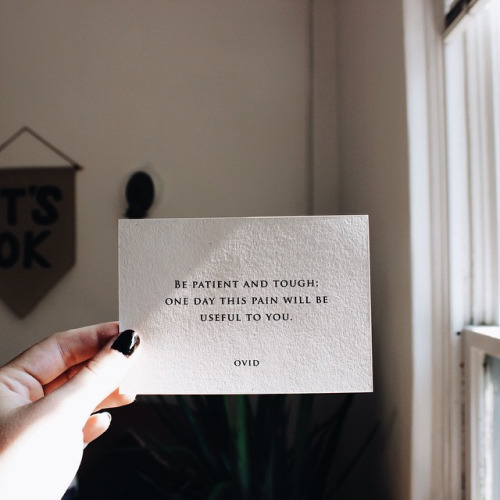 T'S
OK
BE PATIENT AND TOUGH;
ONE DAY THIS PAIN WILL BE
USEFUL TO YOU.
OVID